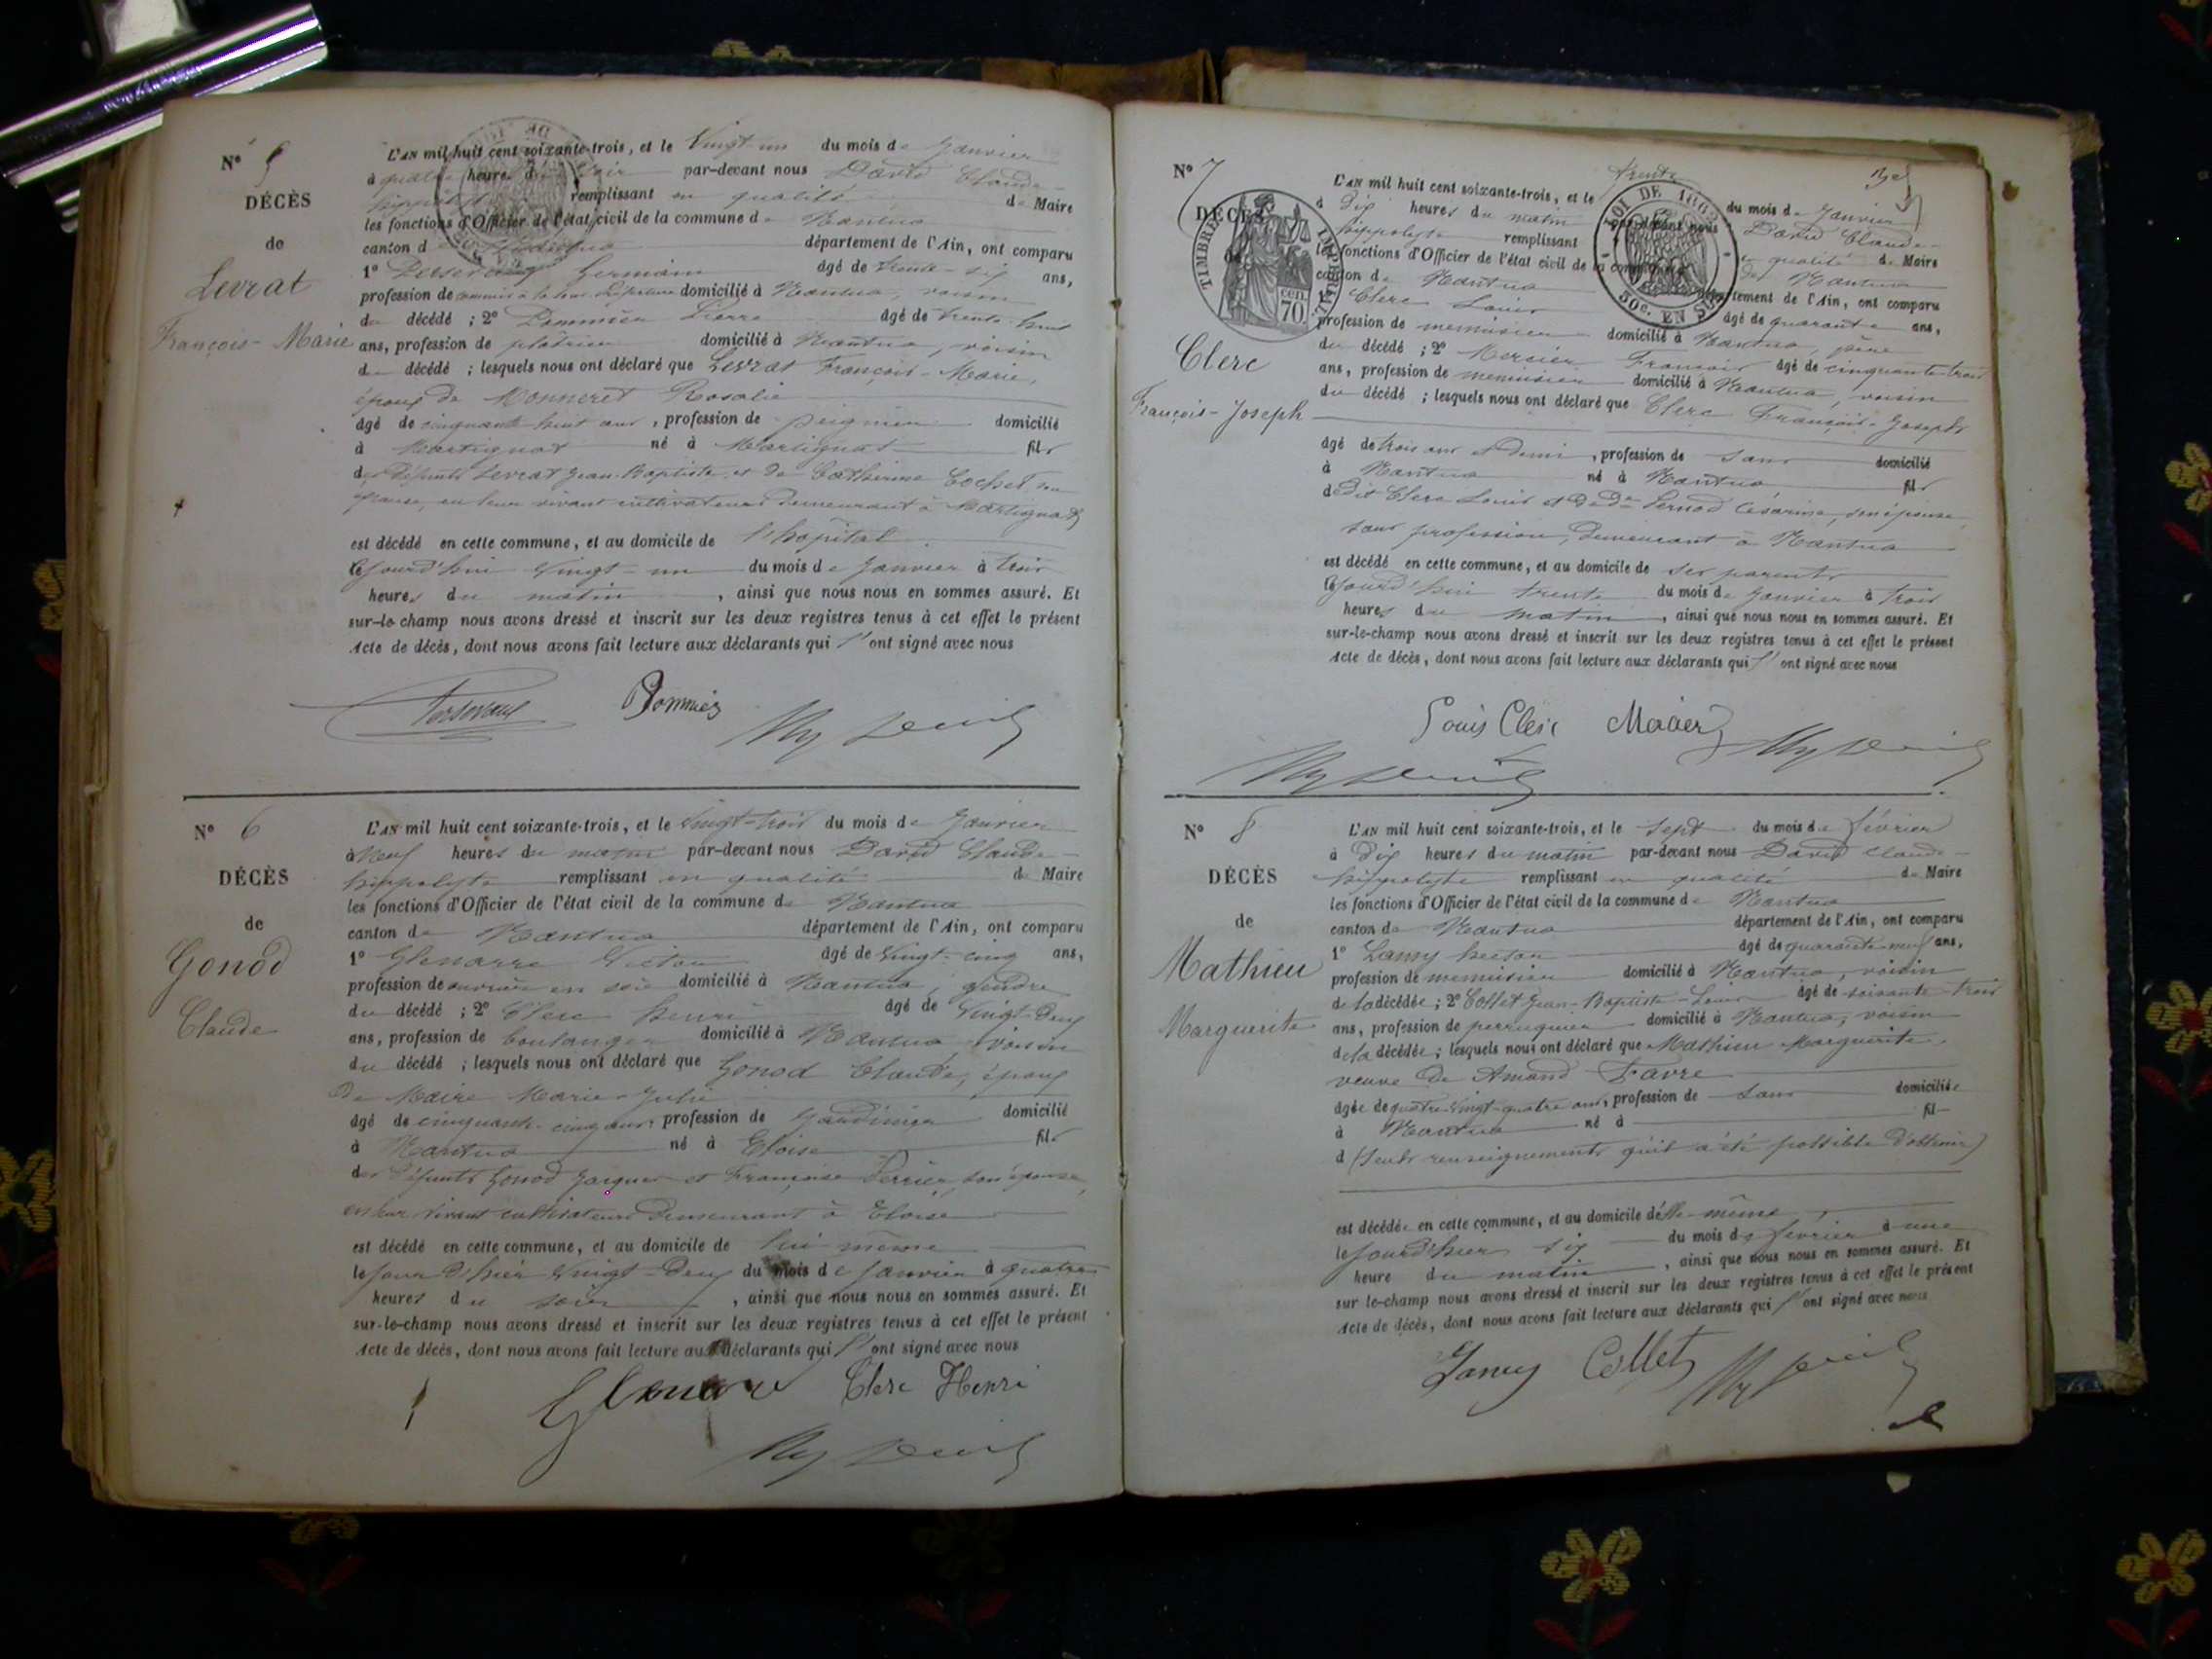 N° 5
DÉCÈS
de
Levrat
François-Marie
L'AN mil huit cent soixante-trois, et le Vingt-un du mois de Janvier
à quatre heures du soir par-devant nous David Claude-
hippolyte remplissant en qualité de Maire
les fonctions d'Officier de l'état civil de la commune de Nantua
canton de Nantua département de l'Ain, ont comparu
1° Germain âgé de trente-six ans,
profession de commis à la Sous-Préfecture domicilié à Nantua, voisin
du décédé ; 2° Pommier Pierre âgé de trente-huit
ans, profession de plâtrier domicilié à Nantua, voisin
du décédé ; lesquels nous ont déclaré que Levrat François-Marie,
époux de Monneret Rosalie
âgé de cinquante-huit ans, profession de peigneur domicilié
à Martignat né à Martignat fils
des défunts Levrat Jean-Baptiste et de Catherine Cochet son
épouse, en leur vivant cultivateurs demeurant à Martignat
est décédé en cette commune, et au domicile de l'hôpital
cejourd'hui vingt-un du mois de Janvier à trois
heures du matin, ainsi que nous nous en sommes assuré. Et
sur-le-champ nous avons dressé et inscrit sur les deux registres tenus à cet effet le présent
Acte de décès, dont nous avons fait lecture aux déclarants qui l'ont signé avec nous
Pommier
N° 6
DÉCÈS
de
Gonod
Claude
L'AN mil huit cent soixante-trois, et le Vingt-trois du mois de Janvier
à Neuf heures du matin par-devant nous David Claude-
hippolyte remplissant en qualité de Maire
les fonctions d'Officier de l'état civil de la commune de Nantua
canton de Nantua département de l'Ain, ont comparu
1° Glenarre Victor âgé de Vingt-cinq ans,
profession de ouvrier en soie domicilié à Nantua, gendre
du décédé ; 2° Clerc henri âgé de Vingt-deux
ans, profession de boulanger domicilié à Nantua, voisin
du décédé ; lesquels nous ont déclaré que Gonod Claude, époux
de Maire Marie-Julie
âgé de cinquante-cinq ans, profession de Jardinier domicilié
à Nantua né à Eloise fils
des défunts Gonod Jacques et Françoise Perrier, son épouse,
en leur vivant cultivateurs demeurant à Eloise
est décédé en cette commune, et au domicile de lui-même
le jour d'hier Vingt-deux du mois de Janvier à quatre
heures du soir, ainsi que nous nous en sommes assuré. Et
sur-le-champ nous avons dressé et inscrit sur les deux registres tenus à cet effet le présent
Acte de décès, dont nous avons fait lecture aux déclarants qui l'ont signé avec nous
Clerc Henri
N° 7
DÉCÈS
de
TIMBRE IMPERIAL
70 cen.
LOI DE 1862
50c. EN SUS
Clerc
François-Joseph
L'AN mil huit cent soixante-trois, et le trente du mois de Janvier
à dix heures du matin par-devant nous David Claude-
hippolyte remplissant en qualité de Maire
les fonctions d'Officier de l'état civil de la commune de Nantua
canton de Nantua département de l'Ain, ont comparu
Clerc Louis âgé de quarante ans,
profession de menuisier domicilié à Nantua, père
du décédé ; 2° Mercier François âgé de cinquante-trois
ans, profession de menuisier domicilié à Nantua, voisin
du décédé ; lesquels nous ont déclaré que Clerc François-Joseph
âgé de trois ans et demi, profession de sans domicilié
à Nantua né à Nantua fils
dudit Clerc Louis et de De Pernod Césarine, son épouse,
sans profession, demeurant à Nantua
est décédé en cette commune, et au domicile de ses parents
cejourd'hui trente du mois de Janvier à trois
heures du matin, ainsi que nous nous en sommes assuré. Et
sur-le-champ nous avons dressé et inscrit sur les deux registres tenus à cet effet le présent
Acte de décès, dont nous avons fait lecture aux déclarants qui l'ont signé avec nous
Louis Clerc
N° 8
DÉCÈS
de
Mathieu
Marguerite
L'AN mil huit cent soixante-trois, et le sept du mois de février
à dix heures du matin par-devant nous David Claude-
hippolyte remplissant en qualité de Maire
les fonctions d'Officier de l'état civil de la commune de Nantua
canton de Nantua département de l'Ain, ont comparu
1° Lamy hector âgé de quarante-neuf ans,
profession de menuisier domicilié à Nantua, voisin
de la décédée ; 2° Collet Jean-Baptiste-Louis âgé de soixante-trois
ans, profession de perruquier domicilié à Nantua, voisin
de la décédée ; lesquels nous ont déclaré que Mathieu Marguerite,
veuve de Amand Favre
âgée de quatre-vingt-quatre ans, profession de sans domiciliée
à Nantua né à fil
d (Seuls renseignements qu'il a été possible d'obtenir)
est décédée en cette commune, et au domicile d'elle-même,
le jour d'hier six du mois de février à une
heure du matin, ainsi que nous nous en sommes assuré. Et
sur le-champ nous avons dressé et inscrit sur les deux registres tenus à cet effet le présent
Acte de décès, dont nous avons fait lecture aux déclarants qui l'ont signé avec nous
Lamy Collet